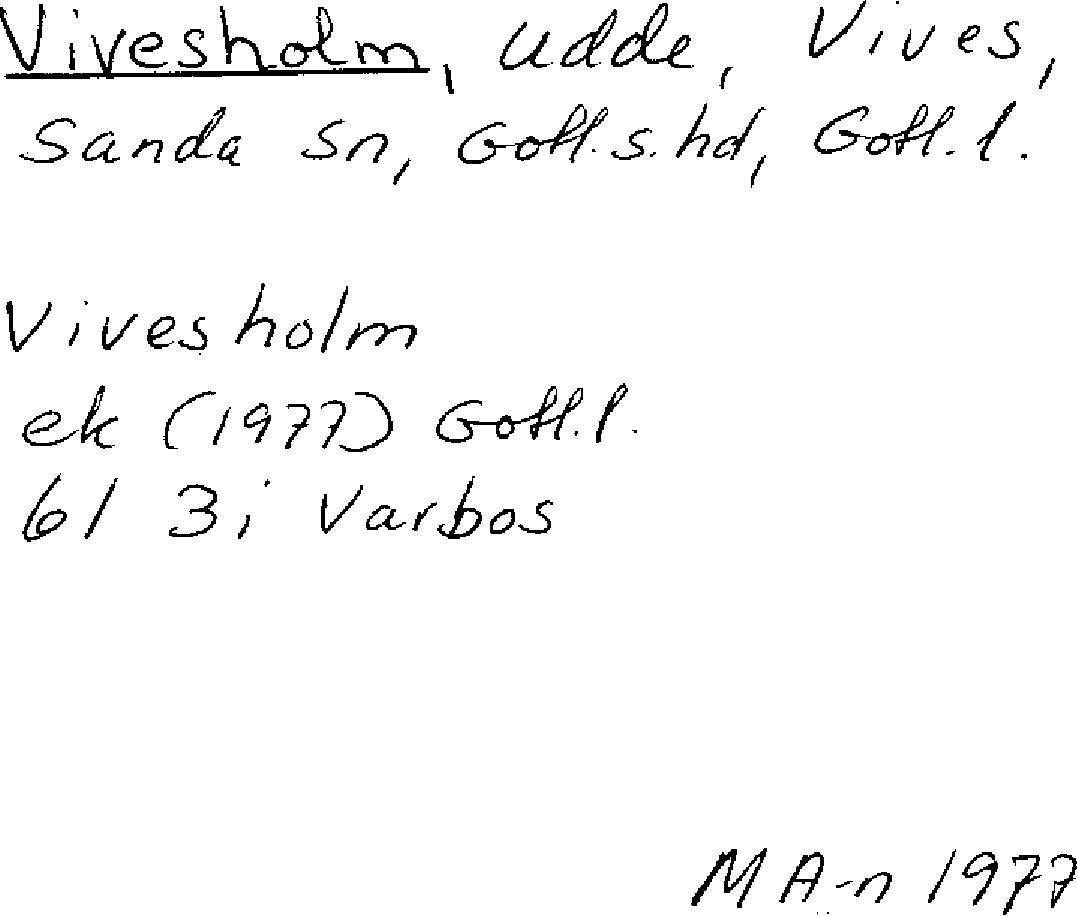 Vivesholm, udde, Vives,
Sanda sn, Gotl.s.hd, Gotl.l.
Vivesholm
ek (1977) Gotl.l.
6I 3i Varbos
MA-n 1977